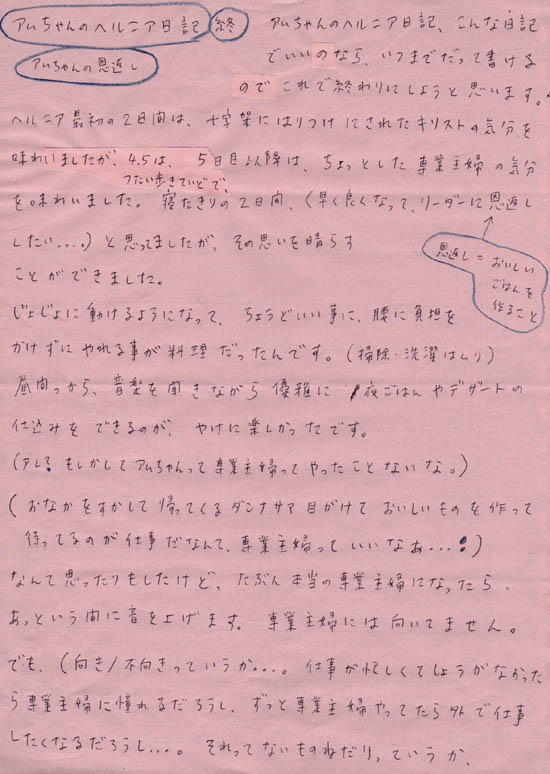 アムちゃんのヘルニア日記 終
アムちゃんの恩返し
アムちゃんのヘルニア日記、こんな日記
でいいのなら、いつまでだって書ける
のでこれで終わりにしようと思います。
ヘルニア最初の2日間は、十字架にはりつけにされたキリストの気分を
味わいましたが、4.5は、5日目以降は、ちょっとした専業主婦の気分
つたい歩きていどで、
を味わいました。寝たきりの2日間、(早く良くなって、リーダーに恩返し
したい....)と思ってましたが、その思いを晴らす
ことができました。
恩返し=おいしい
ごはんを
作ること
じょじょに動けるようになって、ちょうどいい事に、腰に負担を
かけずにやれる事が料理だったんです。(掃除・洗濯はムリ)
昼間っから、音楽を聞きながら優雅に夜ごはんやデザートの
仕込みをできるのが、やけに楽しかったです。
(アレ?もしかしてアムちゃんって専業主婦ってやったことないな。)
(おなかをすかして帰ってくるダンナサア目がけておいしいものを作って
待ってるのが仕事だなんて、専業主婦っていいなあ...!)
なんて思ったりもしたけど、たぶん本当の専業主婦になったら、
あっという間に音を上げます。専業主婦には向いてません。
でも、(向き/不向きっていうか...。仕事が忙しくてしょうがなかった
ら専業主婦に憧れるだろうし、ずっと専業主婦やってたら外で仕事
したくなるだろうし...。それってないものねだり、ていうか、